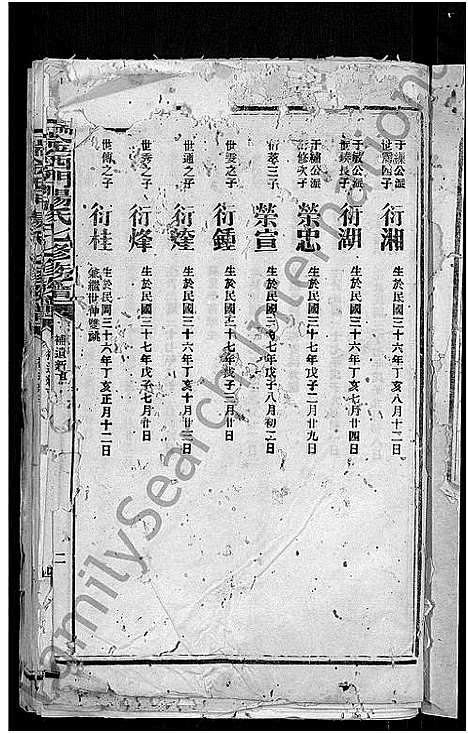 于濂公派
世露四子
衍湘
生於民國三十六年丁亥八月十二日
于敏公派
衍鑄長子
衍湖
生於民國三十六年丁亥七月廿四日
于繡公派
衍修次子
榮忠
生於民國三十七年戊子二月廿九日
衍萃三子
榮宣
生於民國三十七年戊子八月初二日
世雯之子
衍鍾
生於民國三十七年戊子三月廿日
世通之子
衍篷
生於民國三十六年丁亥十月廿三日
世秀之子
衍烽
生於民國三十七年戊子七月廿日
世傳之子
衍桂
生於民國三十六年丁亥正月十二日
兼繼世伸雙祧
楊氏七修族譜
補遺新丁
二
FamilySearch International